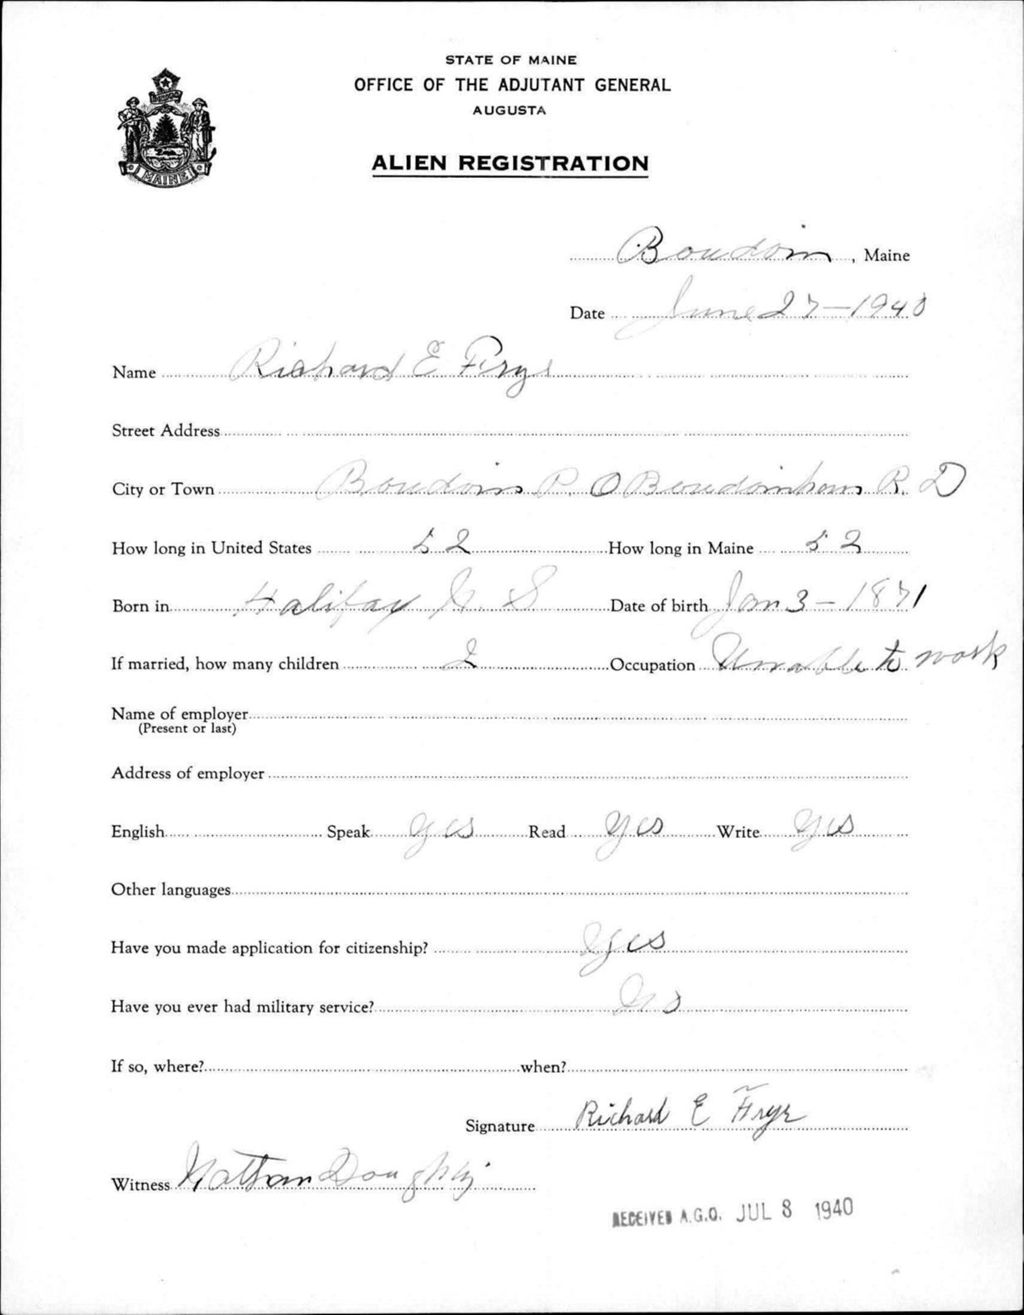 STATE OF MAINE
OFFICE OF THE ADJUTANT GENERAL
AUGUSTA
ALIEN REGISTRATION
MAINE
Bowdoin, Maine
Date June 27-1940
Name Richard E Frye
Street Address
City or Town Bowdoin P. O Bowdoinham R. D
How long in United States 52 How long in Maine 52
Born in Halifax N. S Date of birth Jan 3-1871
If married, how many children 2 Occupation Unable to work
Name of employer
(Present or last)
Address of employer
English Speak yes Read yes Write yes
Other languages
Have you made application for citizenship? Yes
Have you ever had military service? No
If so, where? when?
Signature Richard E Frye
Witness Nathan Doughty
RECEIVED A.G.O. JUL 8 1940